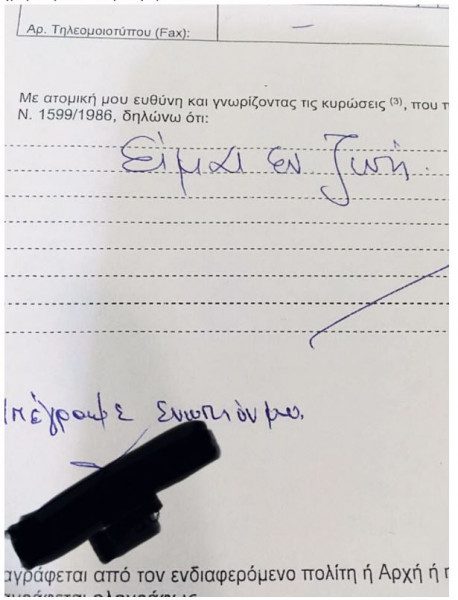 Αρ. Τηλεομοιοτύπου (Fax):
Με ατομική μου ευθύνη και γνωρίζοντας τις κυρώσεις (3), που
Ν. 1599/1986, δηλώνω ότι:
Είμαι εν ζωή.
ενώπιόν μου.
αγράφεται από τον ενδιαφερόμενο πολίτη ή Αρχή ή